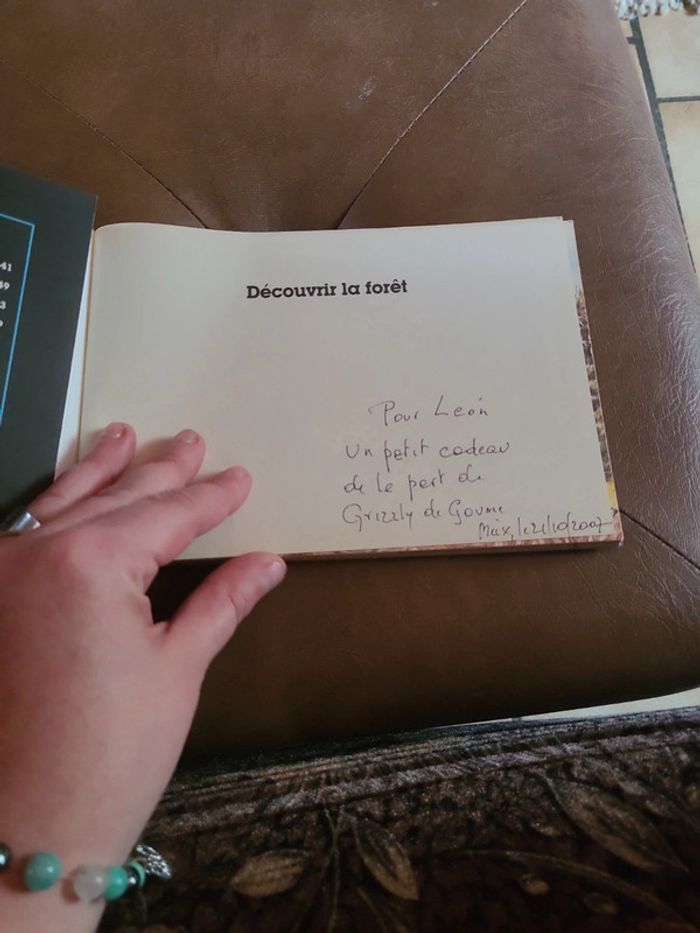 41
49
3
9
Découvrir la forêt
Pour Leon
Un petit cadeau
de la part de
Grizzly de Goume
Meix, le 21/10/2007